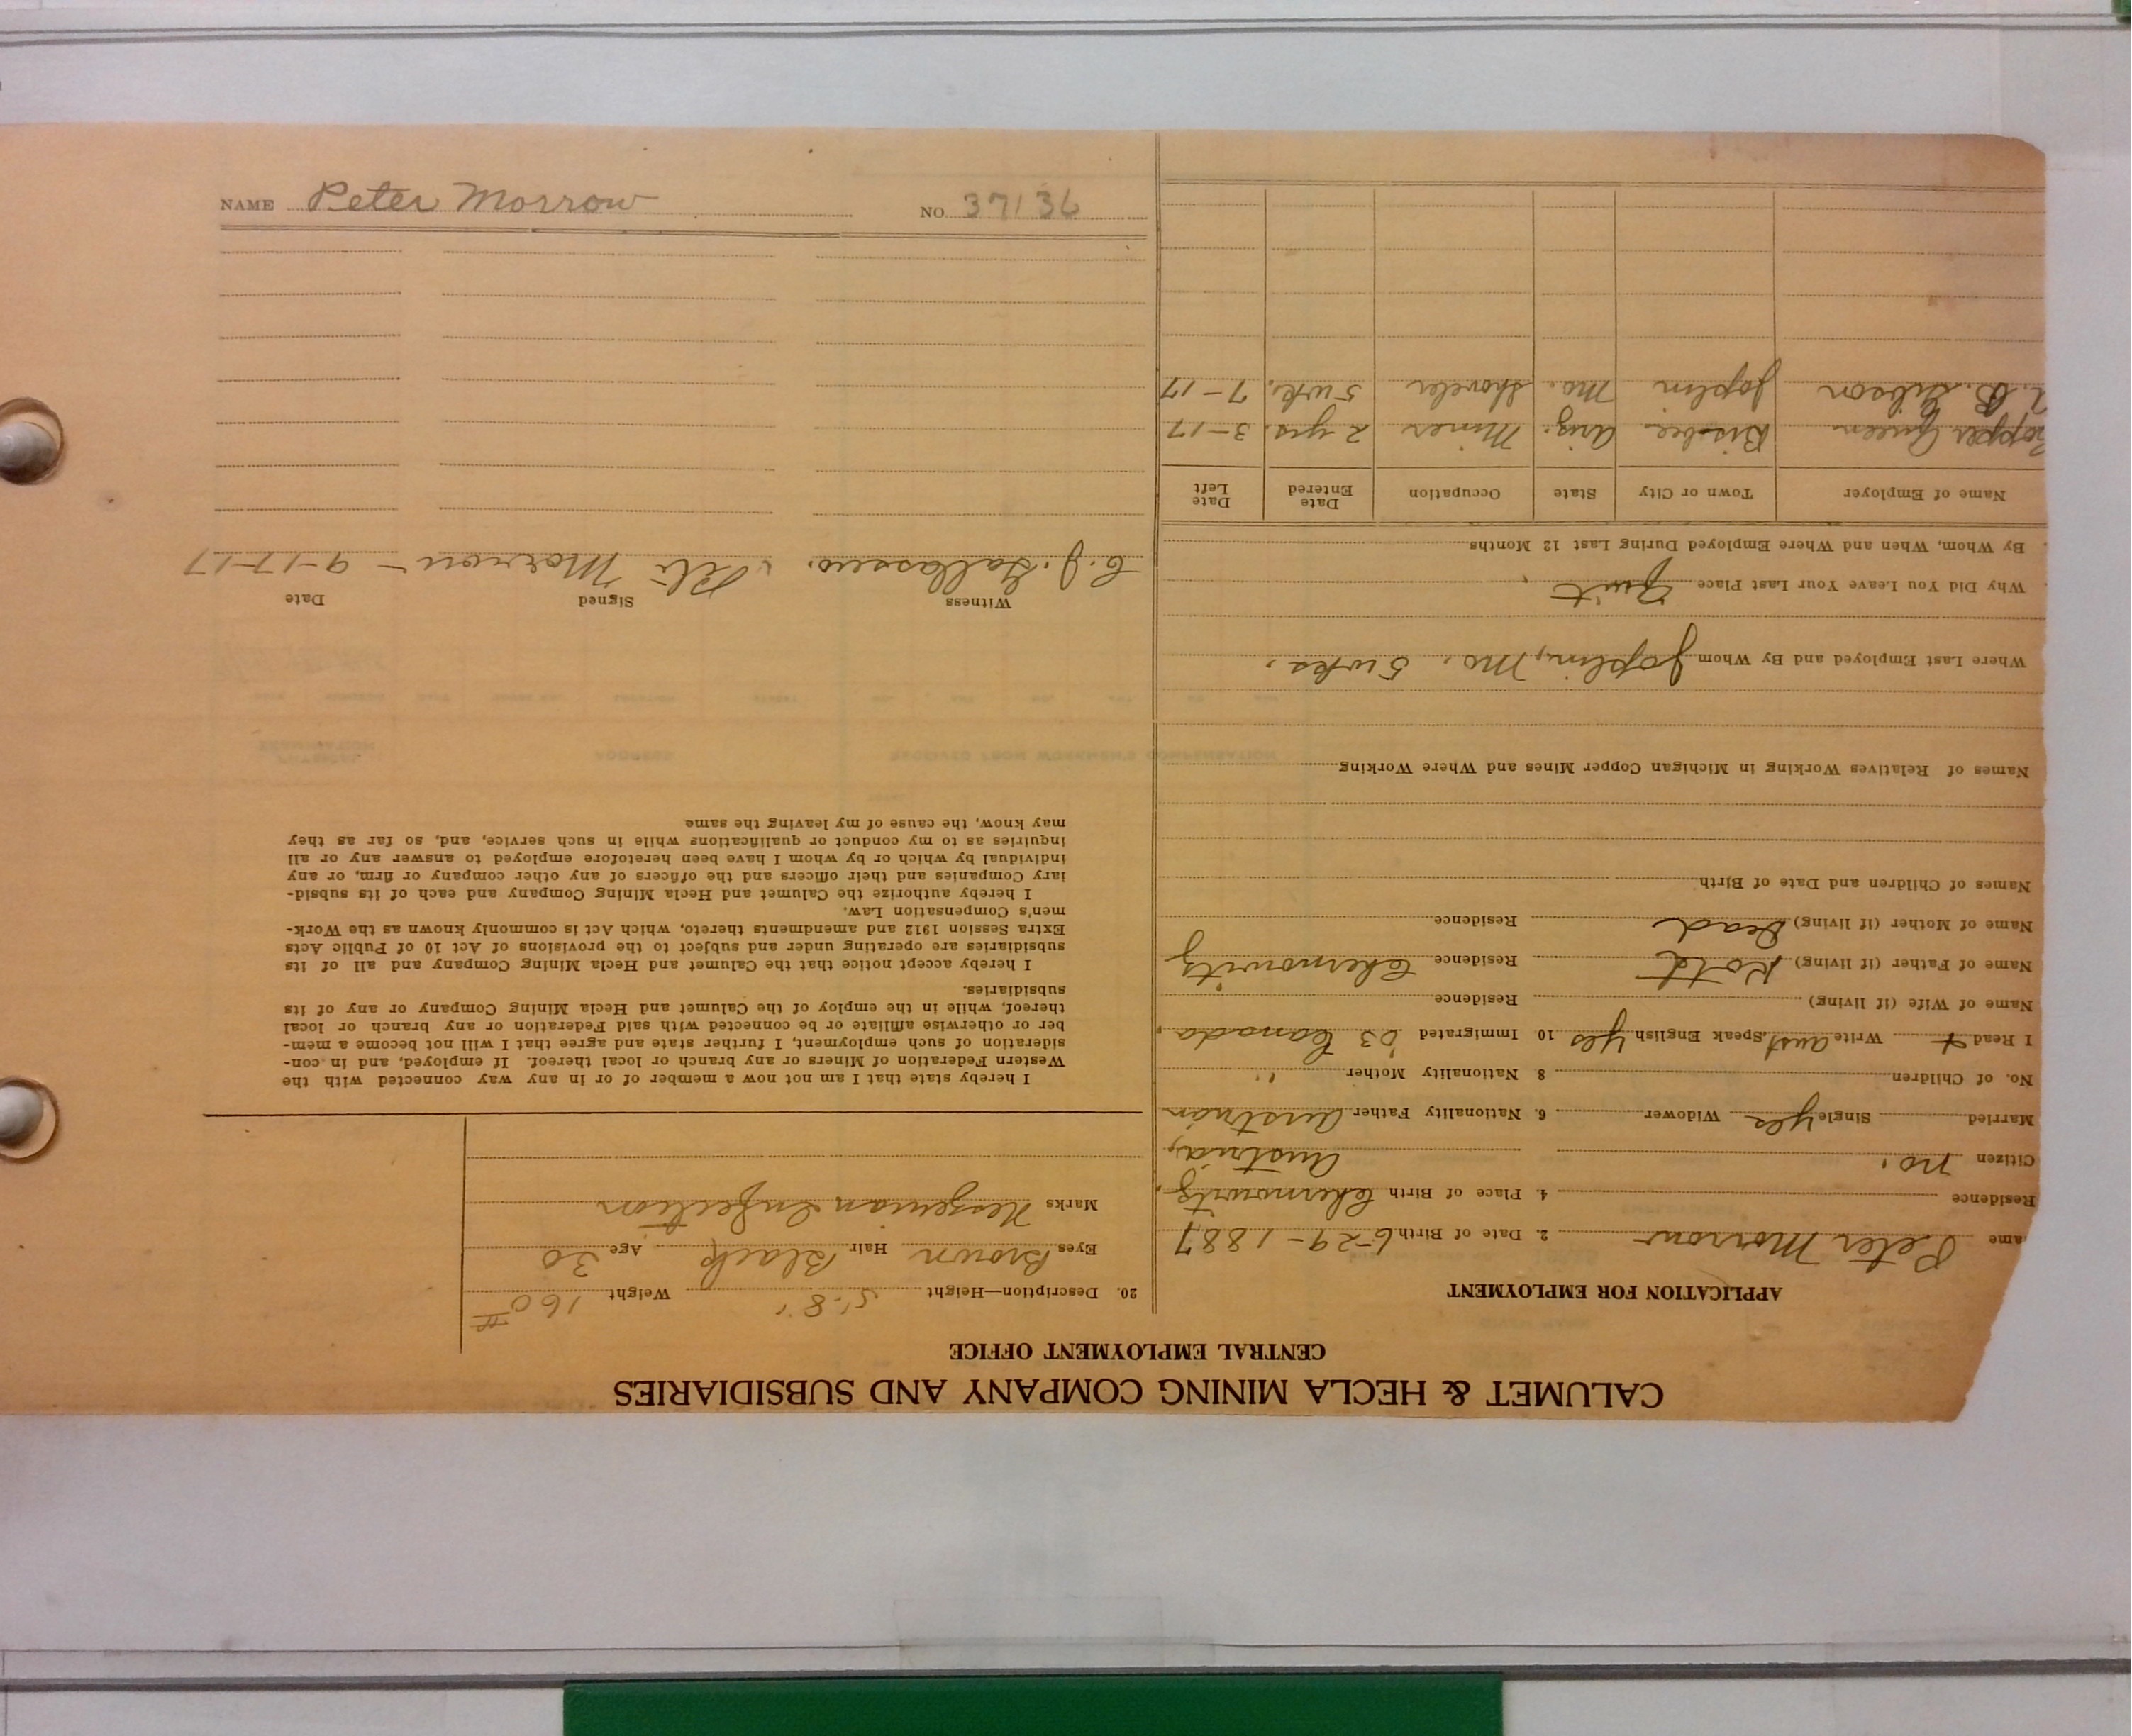 CALUMET & HECLA MINING COMPANY AND SUBSIDIARIES
CENTRAL EMPLOYMENT OFFICE
APPLICATION FOR EMPLOYMENT
ame Peter Morrow 2. Date of Birth 6-29-1887
Residence 4. Place of Birth Chernowitz,
Citizen no. Austria,
Married Single yes Widower 6. Nationality Father Austrian
No. of Children 8 Nationality Mother "
I Read Write Aust. Speak English yes 10 Immigrated '03 Canada,
Name of Wife (if living) Residence
Name of Father (if living) Residence Chernowitz
Name of Mother (if living) Dead Residence
Names of Children and Date of Birth
Names of Relatives Working in Michigan Copper Mines and Where Working
Where Last Employed and By Whom Joplin, Mo. 5 wks.
Why Did You Leave Your Last Place Quit
By Whom, When and Where Employed During Last 12 Months
Name of Employer Town or City State Occupation Date Entered Date Left
Copper Queen Bisbee Ariz. Miner 2 yrs. 3-17
B. Gibson Joplin Mo. Shoveler 5 wk. 7-17
20. Description—Height 5'.8" Weight 160#
Eyes Brown Hair Black Age 30
Marks
I hereby state that I am not now a member of or in any way connected with the
Western Federation of Miners or any branch or local thereof. If employed, and in con-
sideration of such employment, I further state and agree that I will not become a mem-
ber or otherwise affiliate or be connected with said Federation or any branch or local
thereof, while in the employ of the Calumet and Hecla Mining Company or any of its
subsidiaries.
I hereby accept notice that the Calumet and Hecla Mining Company and all of its
subsidiaries are operating under and subject to the provisions of Act 10 of Public Acts
Extra Session 1912 and amendments thereto, which Act is commonly known as the Work-
men's Compensation Law.
I hereby authorize the Calumet and Hecla Mining Company and each of its subsid-
iary Companies and their officers and the officers of any other company or firm, or any
individual by which or by whom I have been heretofore employed to answer any or all
inquiries as to my conduct or qualifications while in such service, and, so far as they
may know, the cause of my leaving the same
Witness Signed Date
Morrow - 9-17-17
NAME Peter Morrow NO. 37136